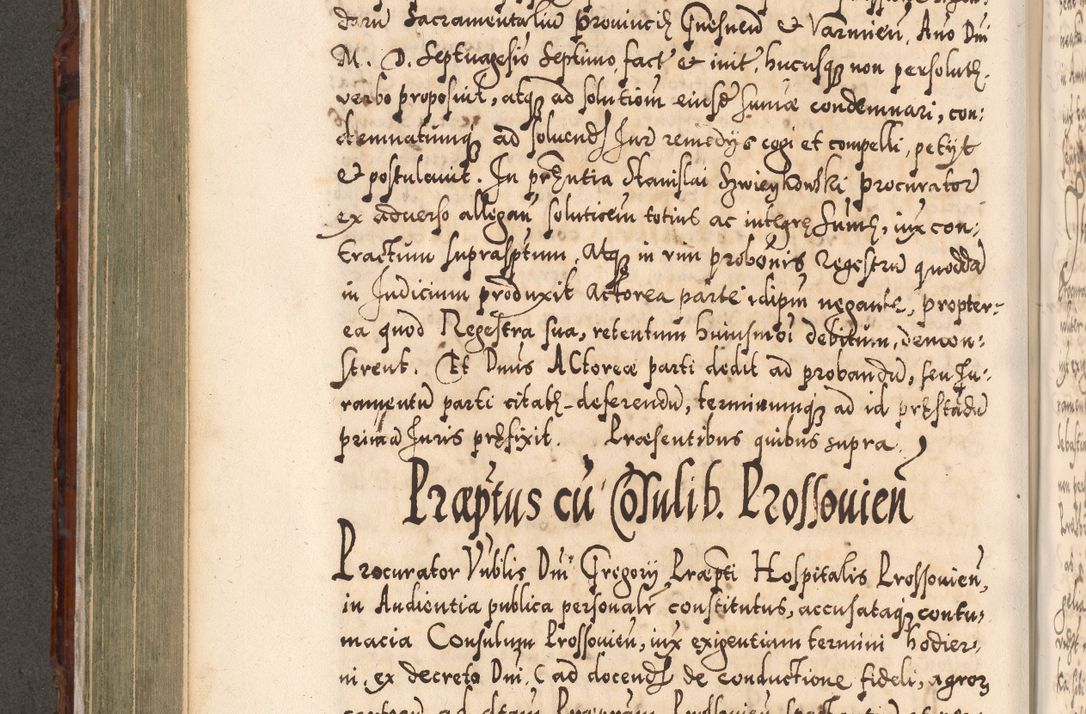 darū Sacramentaliū Provinciæ Gnesnen̄ & Varmien̄, Año Dñi
M. D. Septuagesīo Septimo, fact̄ & init̄, hucusqȝ non persolutæ
verbo proposuit, atqȝ ad solutiom̄ eiusd̄ sum̄æ condemnari, con:
demnatumqȝ ad solvend̄ Jur̄ remedijs cogi et compelli, petijt
& postulavit. In prñtia Stanislai procurator̄
ex adverso allegan̄ solutiom̄ totius ac integræ Sum̄æ, iux con:
tractum suprasptum, Atqȝ in vim probōnis Regestrū quoddā
in Judicium produxit Actorea parte idipm̄ negante, propter:
ea quod Regestra sua, retentum huiusmōi debitum, demon:
strent. Et Dnus Actoreæ parti dedit ad probandū, seu Ju:
ramentū parti citatæ deferendū, terminumqȝ ad id præstādū
primā Juris præfixit. Præsentibus quibus supra.
Præptus cū Cōsulib. Prossovien̄
Procurator Nŭblis Dñi Gregorij Præpti Hospitalis Prossovien̄,
in Audientia publica personalr̄ constitutus, accusataqȝ contu:
macia Consulum Prossovien̄, iux exigentiam termini hodier:
ni, ex decreto Dñi, C ad docend̄ de conductione fideli, agror̄